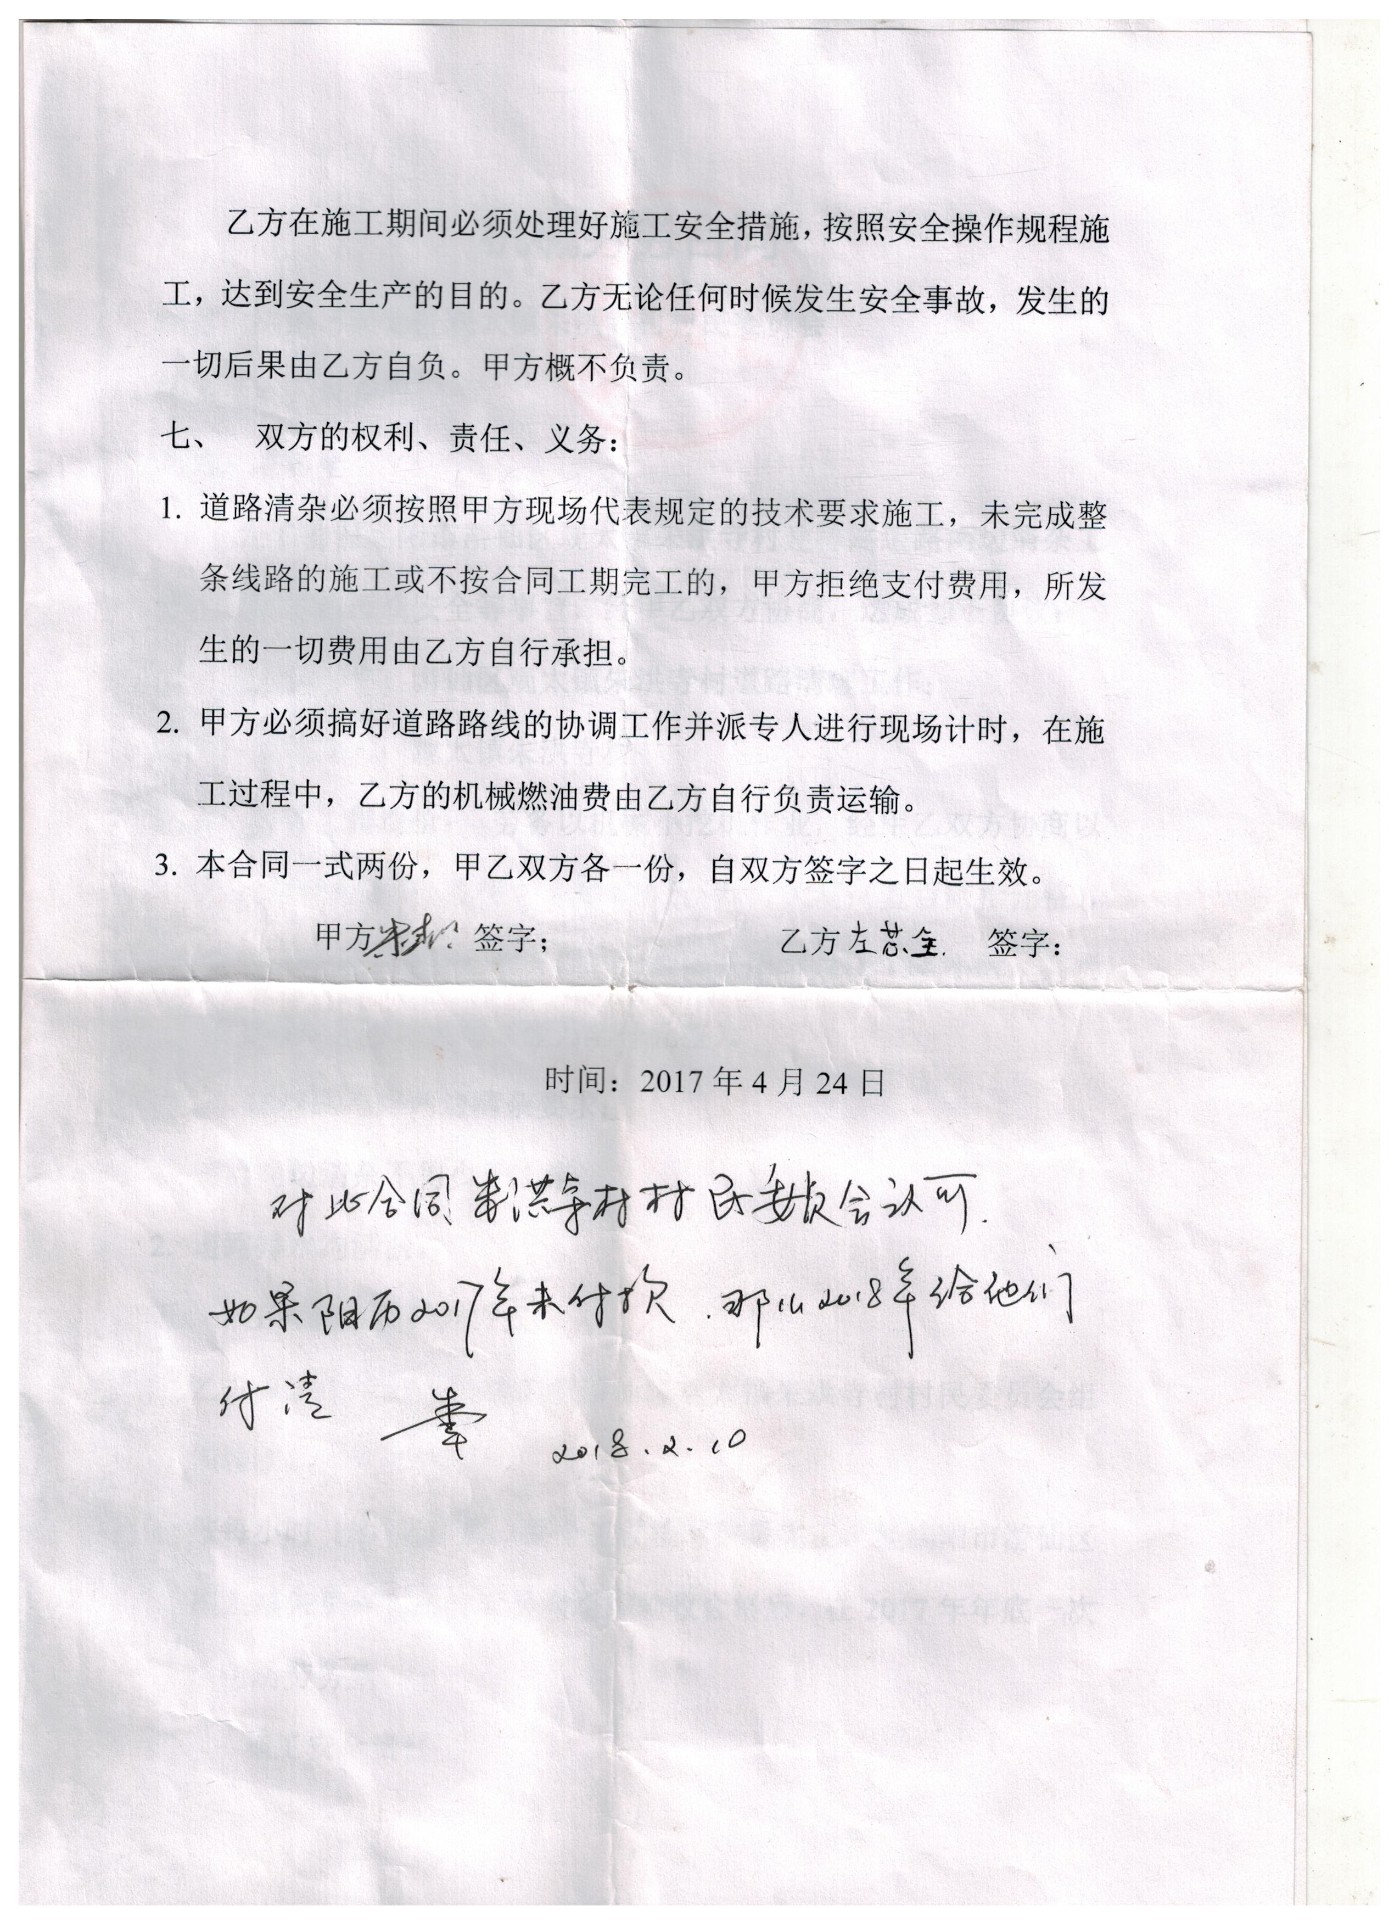 乙方在施工期间必须处理好施工安全措施，按照安全操作规程施
工，达到安全生产的目的。乙方无论任何时候发生安全事故，发生的
一切后果由乙方自负。甲方概不负责。
七、 双方的权利、责任、义务：
1. 道路清杂必须按照甲方现场代表规定的技术要求施工，未完成整
条线路的施工或不按合同工期完工的，甲方拒绝支付费用，所发
生的一切费用由乙方自行承担。
2. 甲方必须搞好道路路线的协调工作并派专人进行现场计时，在施
工过程中，乙方的机械燃油费由乙方自行负责运输。
3. 本合同一式两份，甲乙双方各一份，自双方签字之日起生效。
甲方 签字； 乙方 签字：
时间：2017 年 4 月 24 日
对此合同朱洪寺村村民委员会认可.
如果阳历2017年未付款.那么2018年给他们
付清 2018.2.10